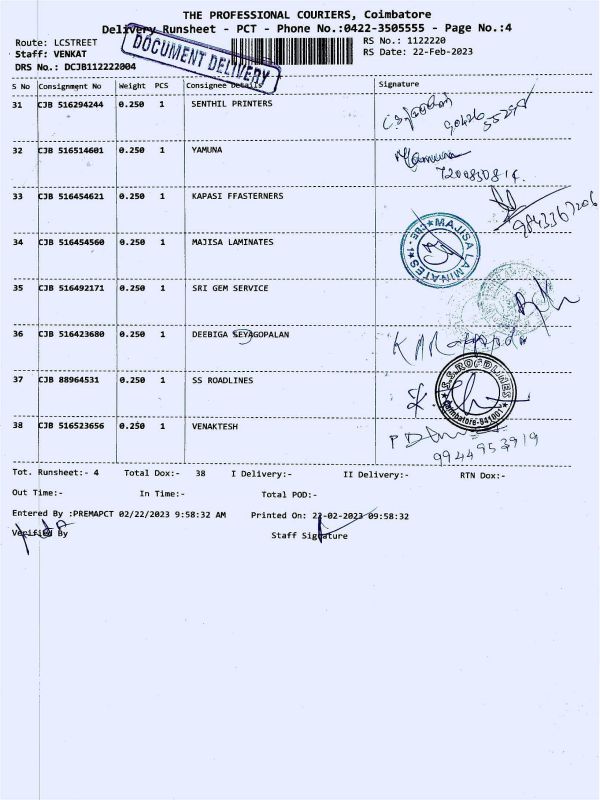 THE PROFESSIONAL COURIERS, Coimbatore
Delivery Runsheet - PCT - Phone No.:0422-3505555 - Page No.:4
Route: LCSTREET
RS No.: 1122220
Staff: VENKAT
RS Date: 22-Feb-2023
DRS No.: DCJB112222004
DOCUMENT DELIVERY
S No Consignment No Weight PCS Consignee Details Signature
31 CJB 516294244 0.250 1 SENTHIL PRINTERS
32 CJB 516514601 0.250 1 YAMUNA
Yamuna
7200830814.
33 CJB 516454621 0.250 1 KAPASI FFASTERNERS
9843367206
34 CJB 516454560 0.250 1 MAJISA LAMINATES
MAJISA LAMINATES
35 CJB 516492171 0.250 1 SRI GEM SERVICE
36 CJB 516423680 0.250 1 DEEBIGA SEYAGOPALAN
37 CJB 88964531 0.250 1 SS ROADLINES
S.S.ROADLINES
Coimbatore-641001
38 CJB 516523656 0.250 1 VENAKTESH
9944953919
Tot. Runsheet:- 4 Total Dox:- 38 I Delivery:- II Delivery:- RTN Dox:-
Out Time:- In Time:- Total POD:-
Entered By :PREMAPCT 02/22/2023 9:58:32 AM Printed On: 22-02-2023 09:58:32
Verified By Staff Signature